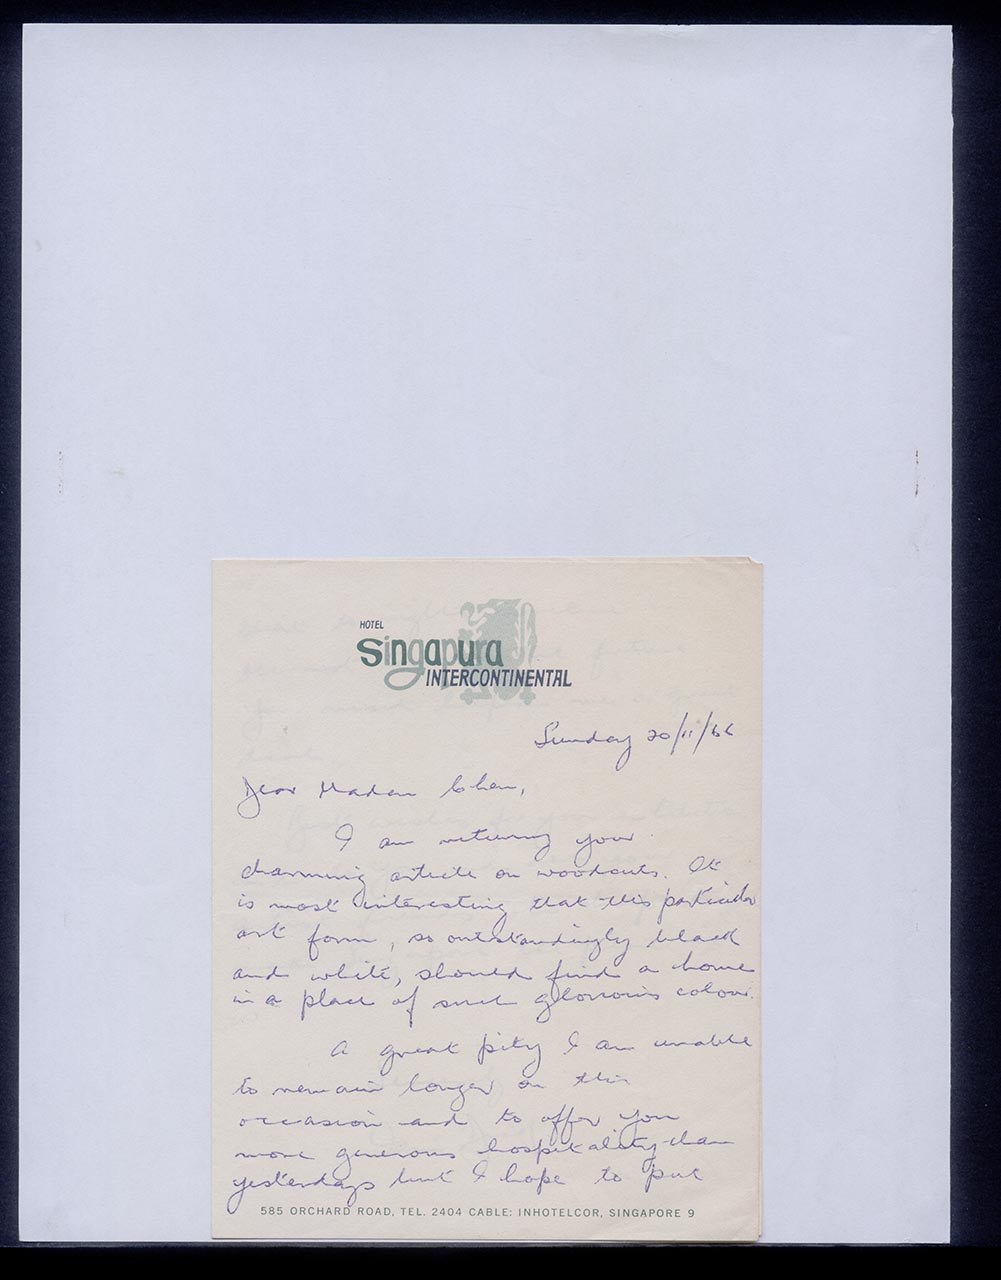 HOTEL
Singapura
INTERCONTINENTAL
Sunday 20/11/66
Dear Madam Chen,
I am returning your
charming article on woodcuts. It
is most interesting that this particular
art form, so outstandingly black
and white, should find a home
in a place of such glorious colour.
A great pity I am unable
to remain longer on this
occasion and to offer you
more generous hospitality than
yesterdays but I hope to put
585 ORCHARD ROAD, TEL. 2404 CABLE: INHOTELCOR, SINGAPORE 9